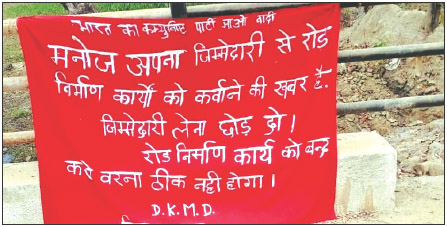 भारत का कम्युनिष्ट पार्टी माओ वादी
मनोज अपना जिम्मेदारी से रोड
निर्माण कार्यो को कर्वाने की खबर है.
जिम्मेदारी लेना छोड़ दो।
रोड निर्माण कार्य को बन्द
करो वरना ठीक नही होगा।
D.K.M.D.